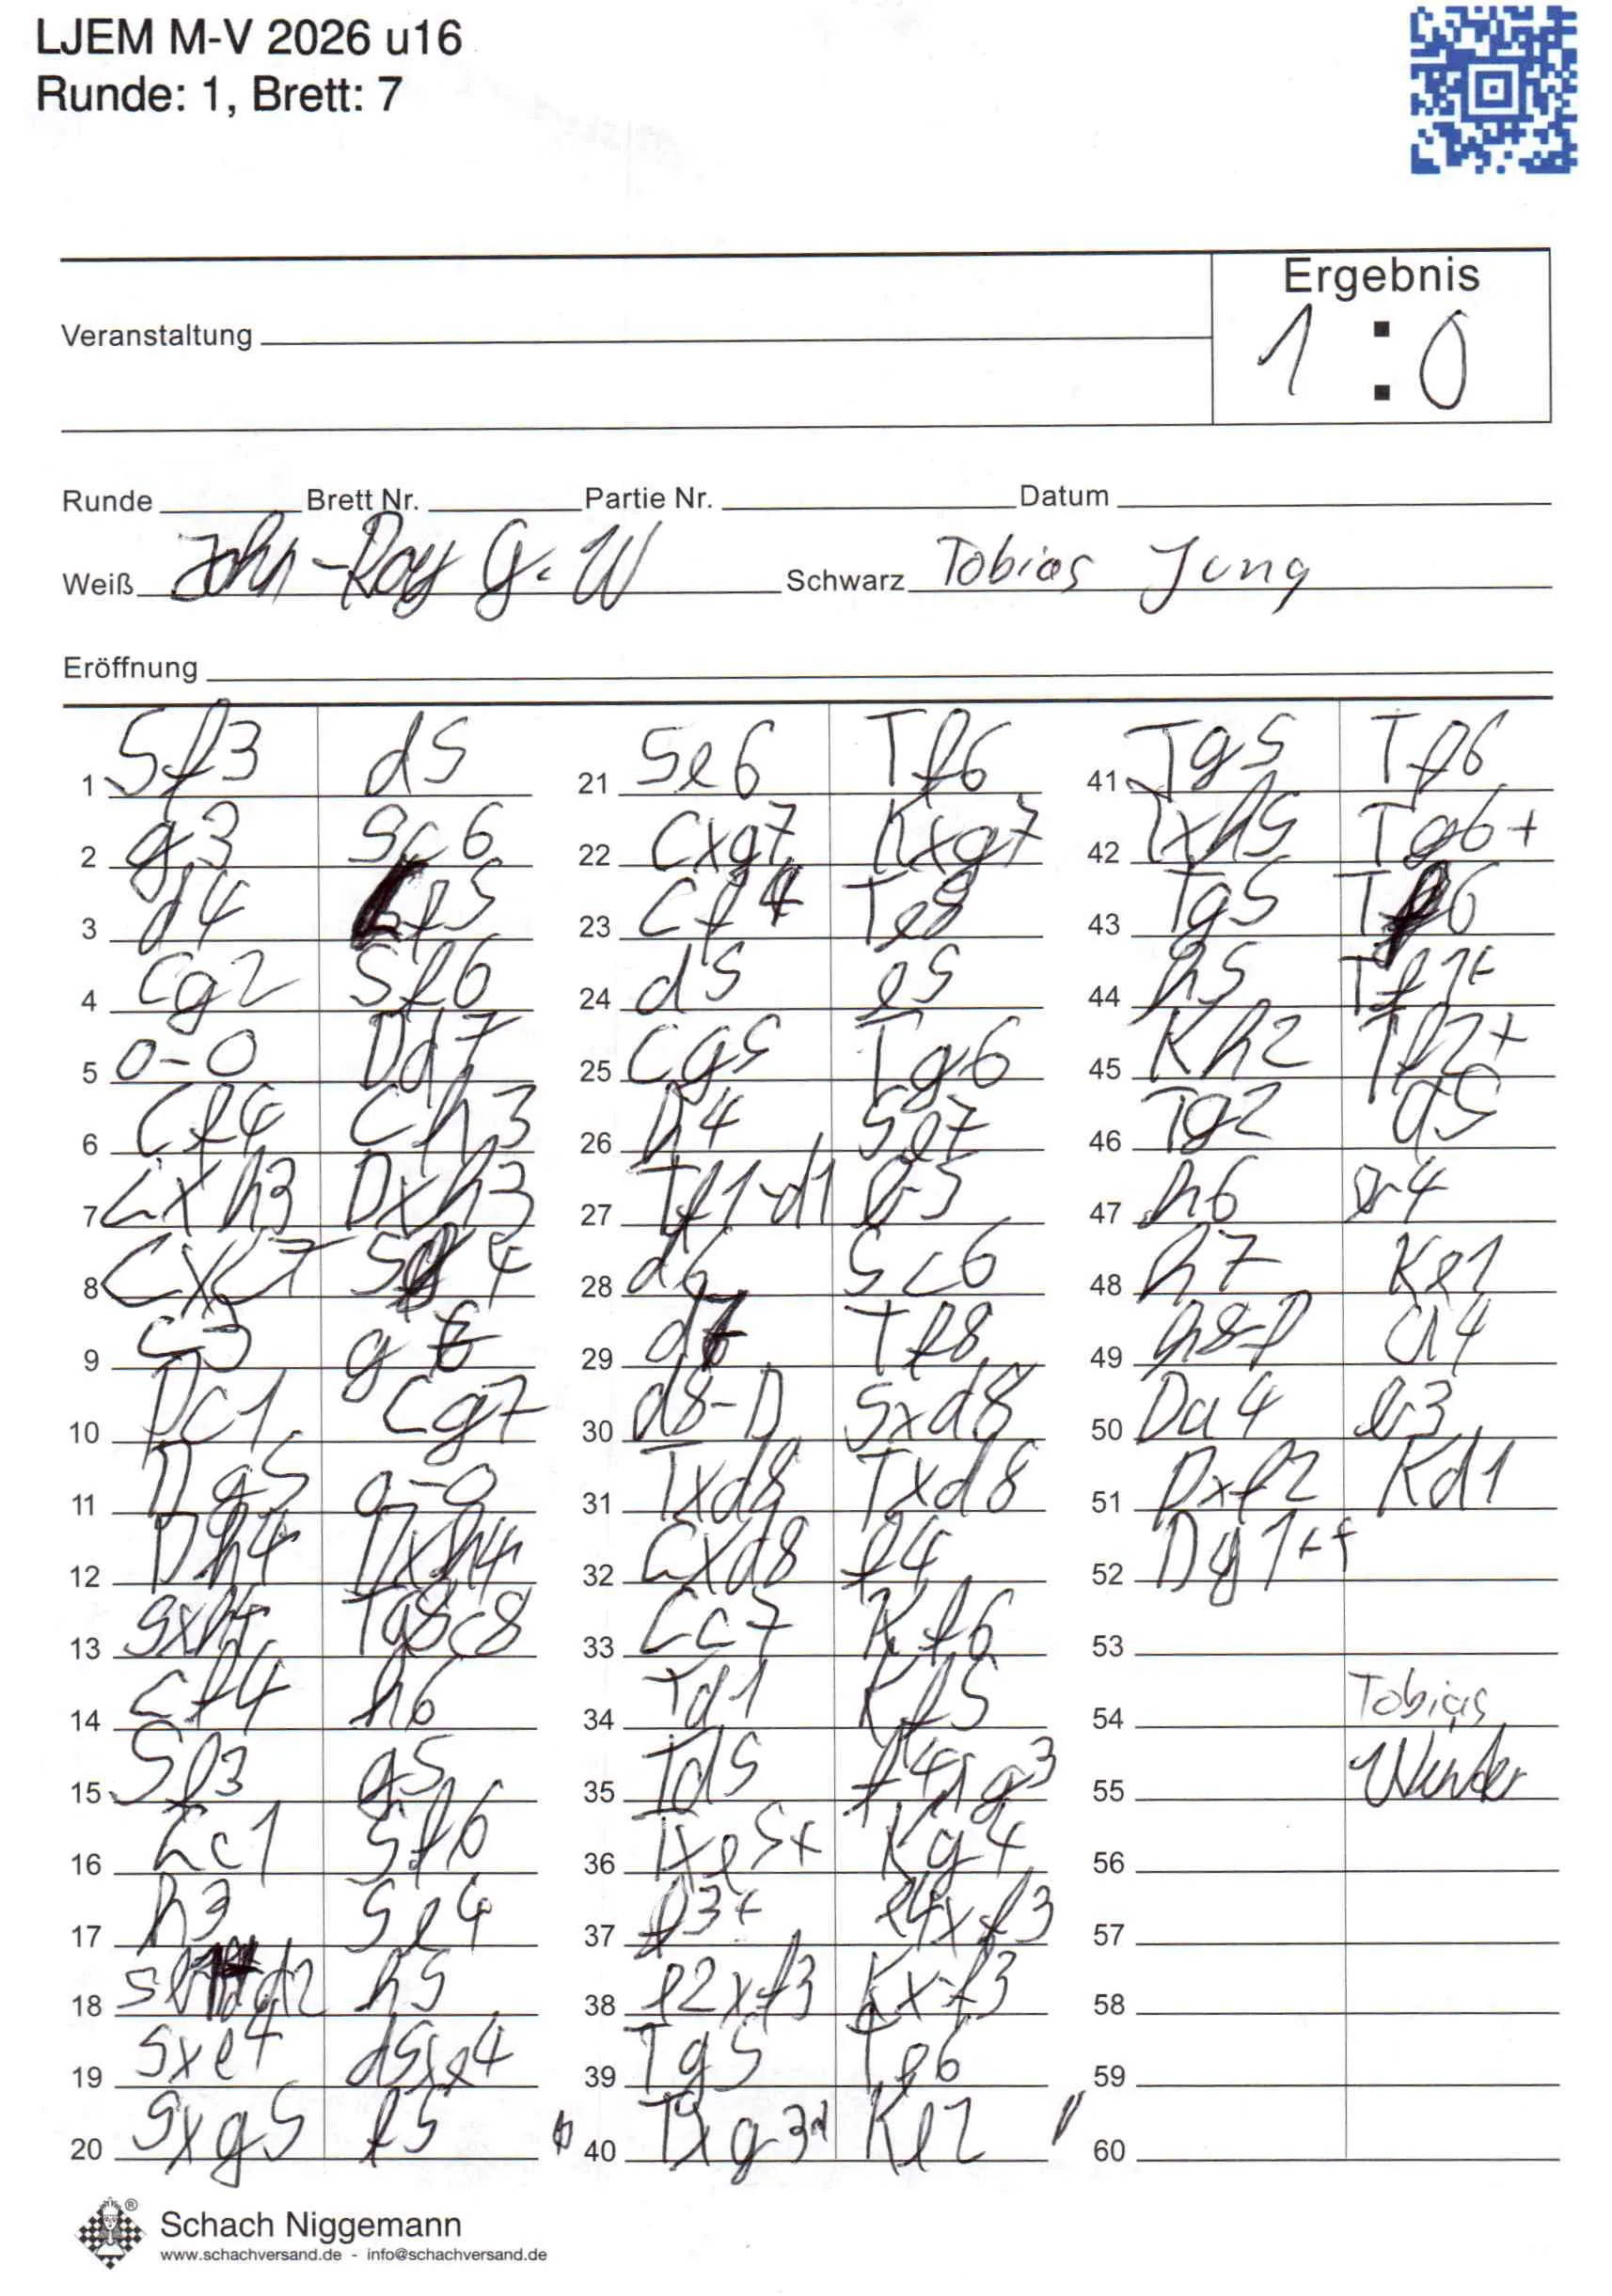 LJEM M-V 2026 u16
Runde: 1, Brett: 7
Ergebnis
1 : 0
Veranstaltung
Runde Brett Nr. Partie Nr. Datum
Weiß John-Roy G. W Schwarz Tobias Jung
Eröffnung
1 Sf3 d5
2 g3 Sc6
3 d4 Lf5
4 Lg2 Sf6
5 0-0 Dd7
6 Lf4 Lh3
7 Lxh3 Dxh3
8 Lxc7 Sg4
9 c3 g6
10 Dc1 Lg7
11 Dg5 0-0
12 Dh4 Dxh4
13 gxh4 Ta8c8
14 Lf4 h6
15 Sf3 g5
16 Lc1 Sf6
17 h3 Se4
18 d2 h5
19 Sxe4 d5xe4
20 Sxg5 f5
21 Se6 Tf6
22 Lxg7 Kxg7
23 Lf4 Te8
24 d5 e5
25 Lg5 Tg6
26 h4 Se7
27 Tf1-d1 b5
28 d6 Sc6
29 d7 Tf8
30 d8-D Sxd8
31 Txd8 Txd8
32 Lxd8 f4
33 Lc7 Kf6
34 Td1 Kf5
35 Td5 f4xg3
36 Txe5+ Kg4
37 f3+ e4xf3
38 e2xf3 Kxf3
39 Tg5 Te6
40 Txg3+ Ke2
41 Tg5 Tf6
42 Txh5 Tg6+
43 Tg5 Tf6
44 h5 Tf1+
45 Kh2 Tf2+
46 Tg2 a5
47 h6 b4
48 h7 Ke1
49 h8-D a4
50 Da4 b3
51 Dxf2 Kd1
52 Dg1++
53
54 Tobias
55 Wunder
56
57
58
59
60
®
Schach Niggemann
www.schachversand.de - info@schachversand.de